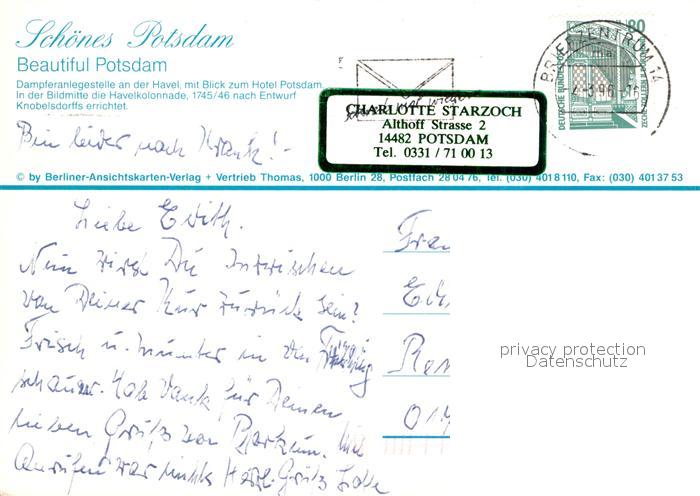 Schönes Potsdam
Beautiful Potsdam
Dampferanlegestelle an der Havel, mit Blick zum Hotel Potsdam
In der Bildmitte die Havelkolonnade, 1745/46 nach Entwurf
Knobelsdorffs errichtet.
Bin leider noch krank! -
80
DEUTSCHE BUNDESPOST
BRIEFZENTRUM 14
-3.96-16
CHARLOTTE STARZOCH
Althoff Strasse 2
14482 POTSDAM
Tel. 0331 / 71 00 13
© by Berliner-Ansichtskarten-Verlag + Vertrieb Thomas, 1000 Berlin 28, Postfach 28 04 76, Tel. (030) 401 8 110, Fax: (030) 401 37 53
Liebe Edith.
Nun wirst Du inzwischen
von Deiner Kur zurück sein?
Frisch u. munter in den Frühling
schauen. Hab Dank für Deinen
lieben Gruß von
Anrufen war nichts Herzl. Grüße Lotte
Frau
Edi
Ren
019
privacy protection
Datenschutz